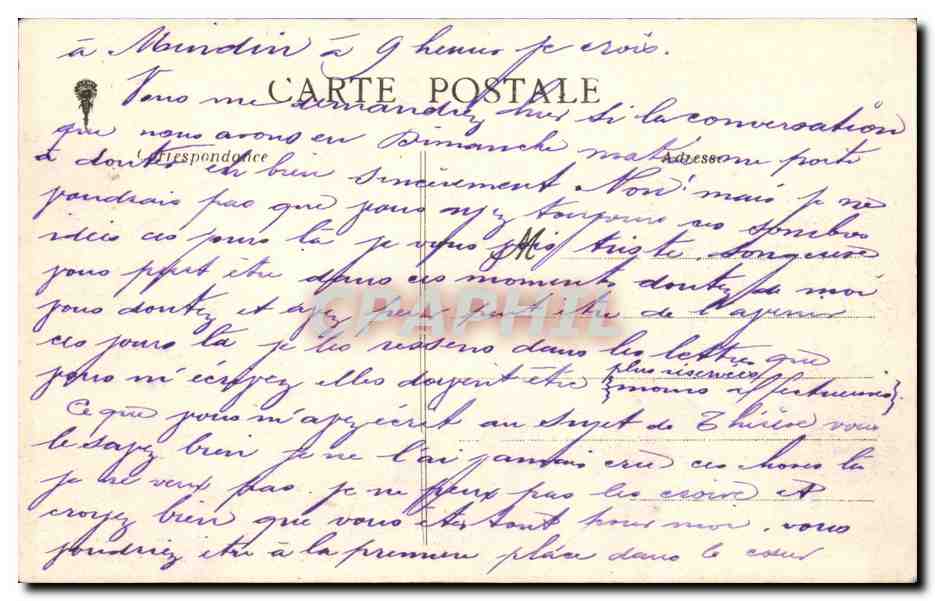 à Mindin à 9 heures je crois.
CARTE POSTALE
Vous me demandiez hier si la conversation
que nous avons eu Dimanche matin me porte
Correspondance
Adresse
à douter eh bien sincèrement Non! mais je ne
voudrais pas que vous ayez toujours ces sombres
idées ces jours là je vous vois triste, songeuse
M
vous peut être dans ces moments doutez de moi
CPAPHIL
vous doutez et avez peur peut être de l'avenir
ces jours là je les ressens dans les lettres que
vous m'écrivez elles doivent être {plus réservées
moins affectueuses}.
Ce que vous m'avez écrit au sujet de Thérèse vous
le savez bien je ne l'ai jamais cru ces choses là
je ne veux pas je ne peux pas les croire et
croyez bien que vous êtes tout pour moi, vous
voudriez être à la première place dans le cœur